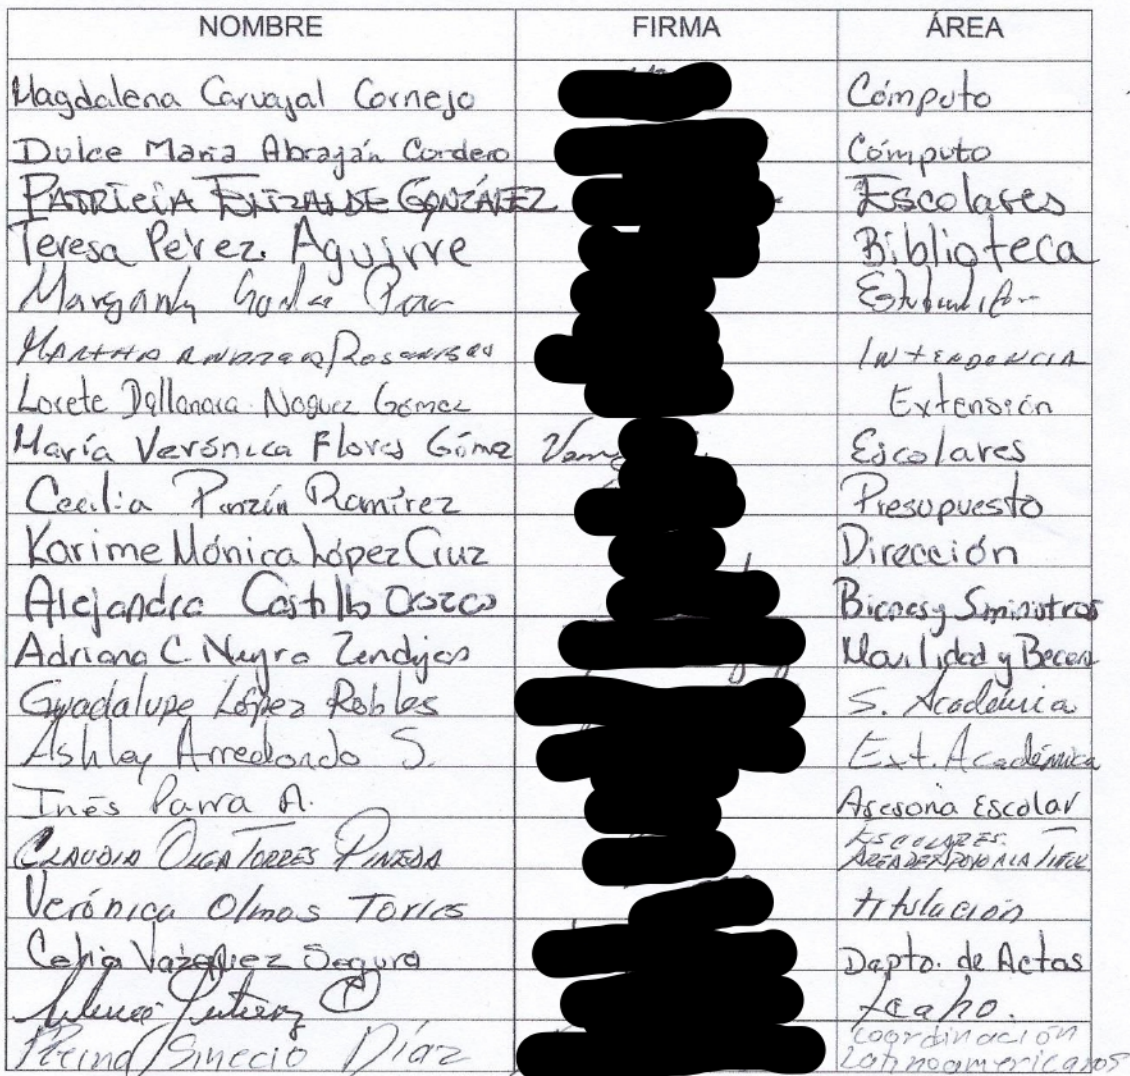 NOMBRE FIRMA ÁREA
Magdalena Carvajal Cornejo Cómputo
Dulce Maria Abraján Cordero Cómputo
PATRICIA ELIZALDE GONZÁLEZ Escolares
Teresa Pérez Aguirre Biblioteca
Margarita
MARTHA INTENDENCIA
Lorete Dallanara Noguez Gómez Extensión
María Verónica Flores Gómez Escolares
Cecilia Pinzón Ramírez Presupuesto
Karime Mónica López Cruz Dirección
Alejandra Castillo Orozco Bienes y Sministros
Adriana C. Negro Zendejas Movilidad y Becas
Guadalupe López Robles S. Académica
Ashley Arredondo S. Ext. Académica
Inés Parra A. Asesoria Escolar
CLAUDIA OLGA TORRES PINEDA ESCOLARES.
AREA DE APOYO A LA TITUL
Verónica Olmos Torres titulación
Celia Vazquez Segura Dapto. de Actas
Gutierrez
Reina Sinecio Díaz Coordinación
Latinoamericanos